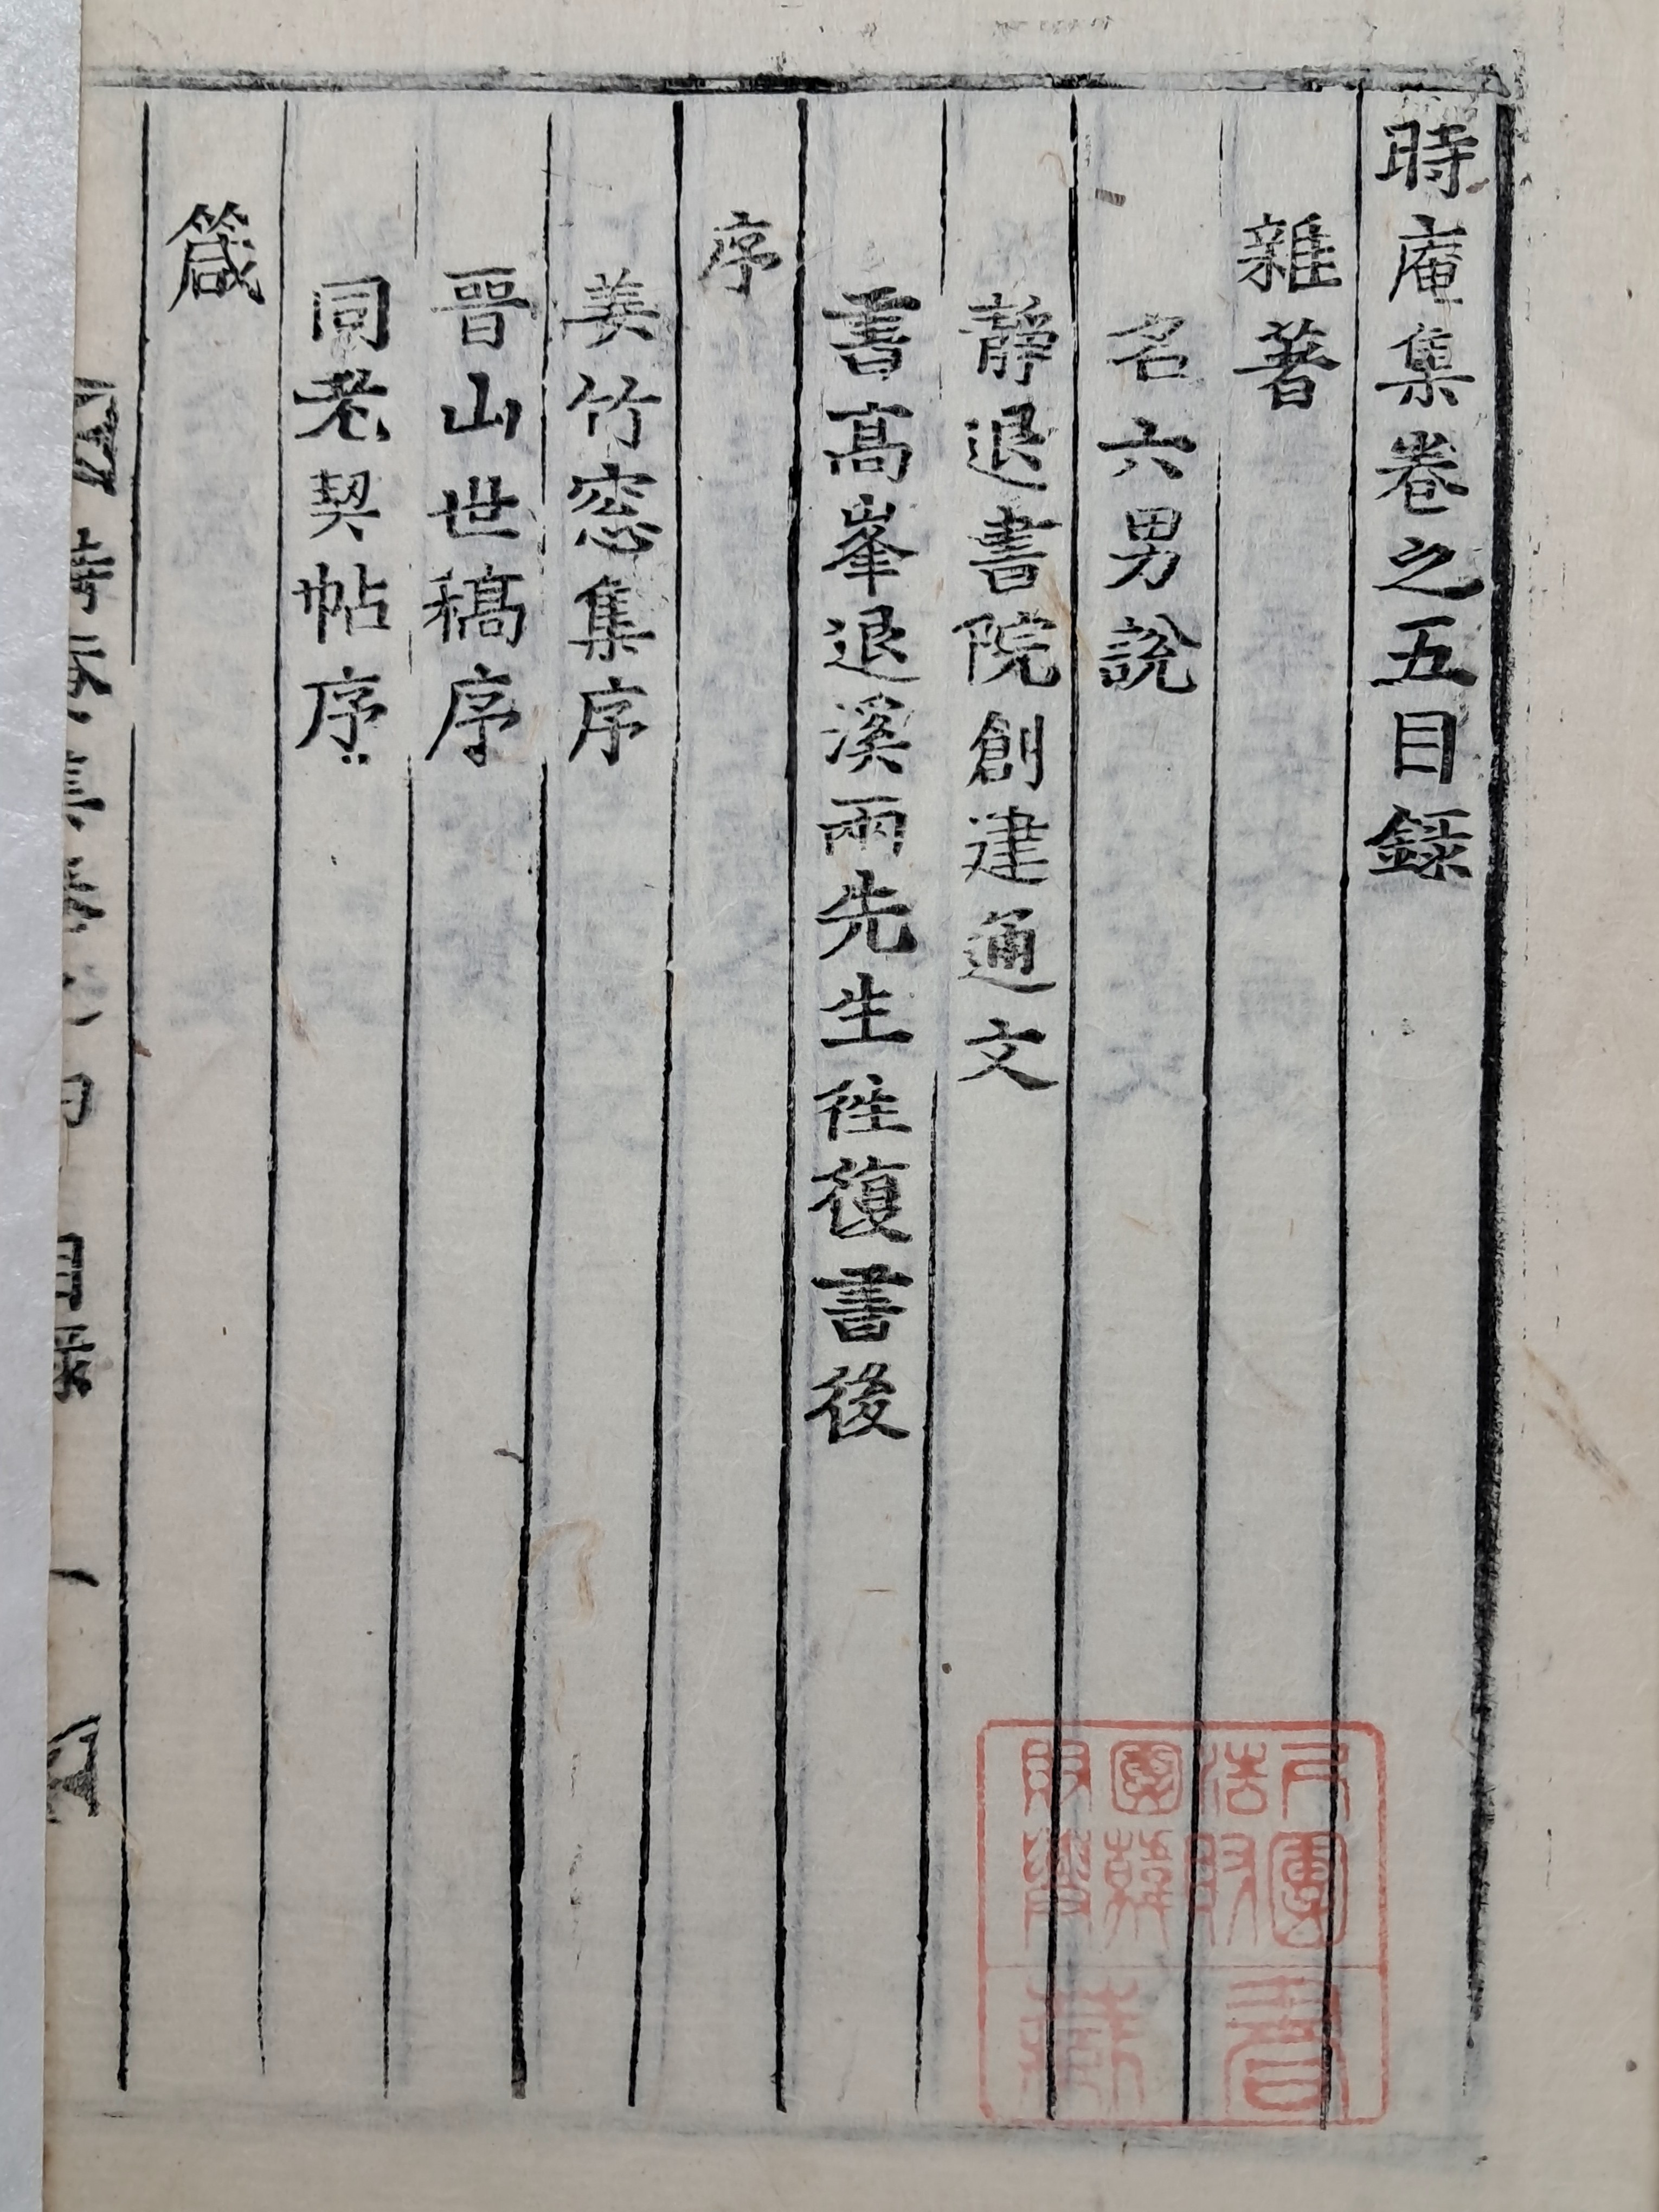 時庵集卷之五目録
雜著
名六男說
靜退書院創建通文
書高峯退溪兩先生往復書後
序
姜竹窓集序
晉山世稿序
同老契帖序
箴